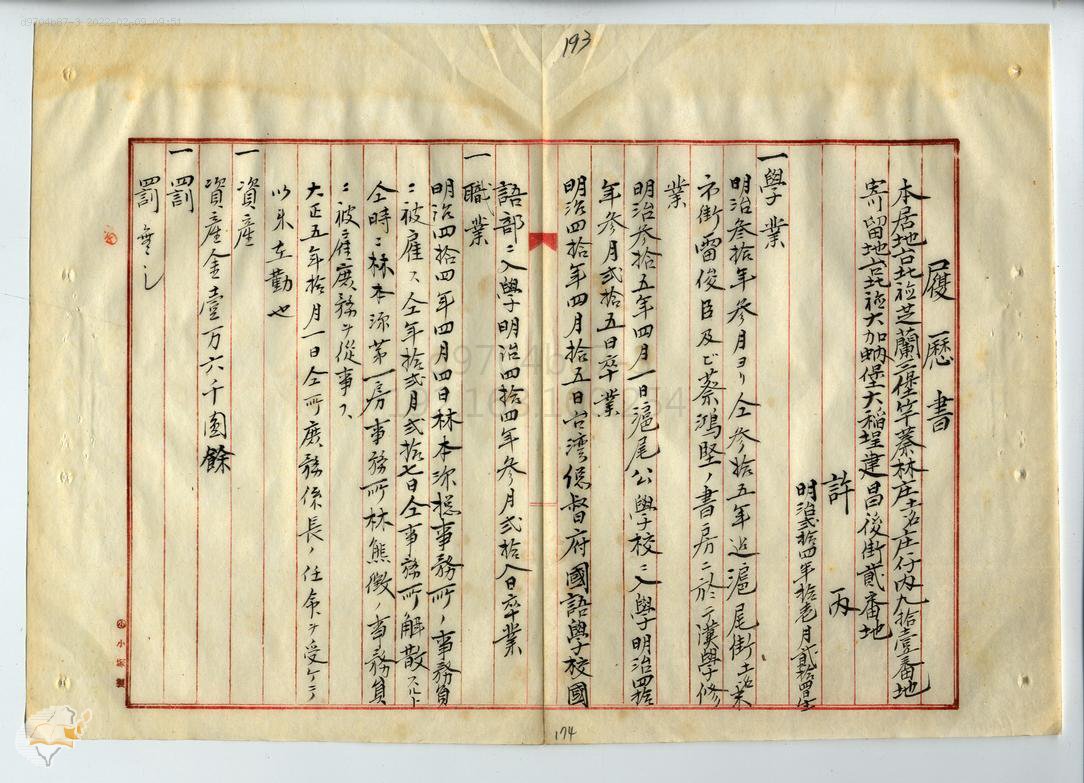 d9704b67-3 2022-02-09 09:51
193
履歷書
本居地台北廳芝蘭二堡竿蓁林庄土名庄仔內九拾壹番地
寄留地台北廳大加蚋堡大稻埕建昌後街貳番地
許丙
明治貳拾四年拾壱月貳拾四日生
一學業
明治叁拾年參月ヨリ仝參拾五年迄滬尾街土名米
市街雷俊臣及ビ蔡鴻堅ノ書房ニ於テ漢學修
業
明治參拾五年四月一日滬尾公學校ニ入學明治四拾
年參月貳拾五日卒業
明治四拾年四月拾五日台湾總督府國語學校國
語部ニ入學明治四拾四年參月貳拾八日卒業
一職業
明治四拾四年四月四日林本源總事務所ノ事務員
ニ被雇ス仝年拾貳月貳拾七日仝事務所解散スルト
仝時ニ林本源第一房事務所林熊徴ノ事務員
ニ被雇庶務ヲ從事ス
大正五年拾月一日仝所庶務係長ノ任命ヲ受ケテ
以来在勤也
一資產
資產金壹万六千圓餘
一罰
罰無之
小塚製
174